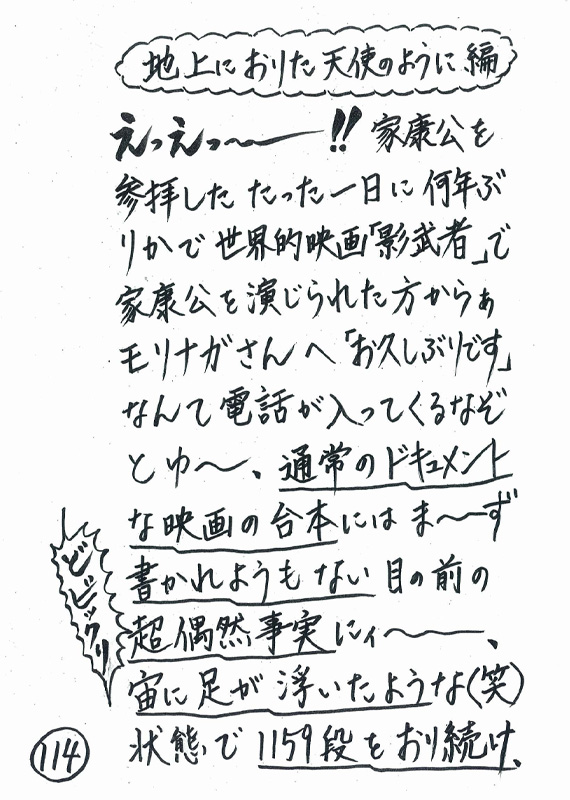 地上におりた天使のように編
えっえっ〜ー!! 家康公を
参拝した たった一日に何年ぶ
りかで世界的映画「影武者」で
家康公を演じられた方からぁ
モリナガさんへ「お久しぶりです」
なんて電話が入ってくるなぞ
とゆ〜、通常のドキュメント
な映画の台本にはま〜ず
書かれようもない目の前の
超偶然事実にィ〜ー、
宙に足が浮いたような(笑)
状態で1159段をおり続け、
ビビックリ
114